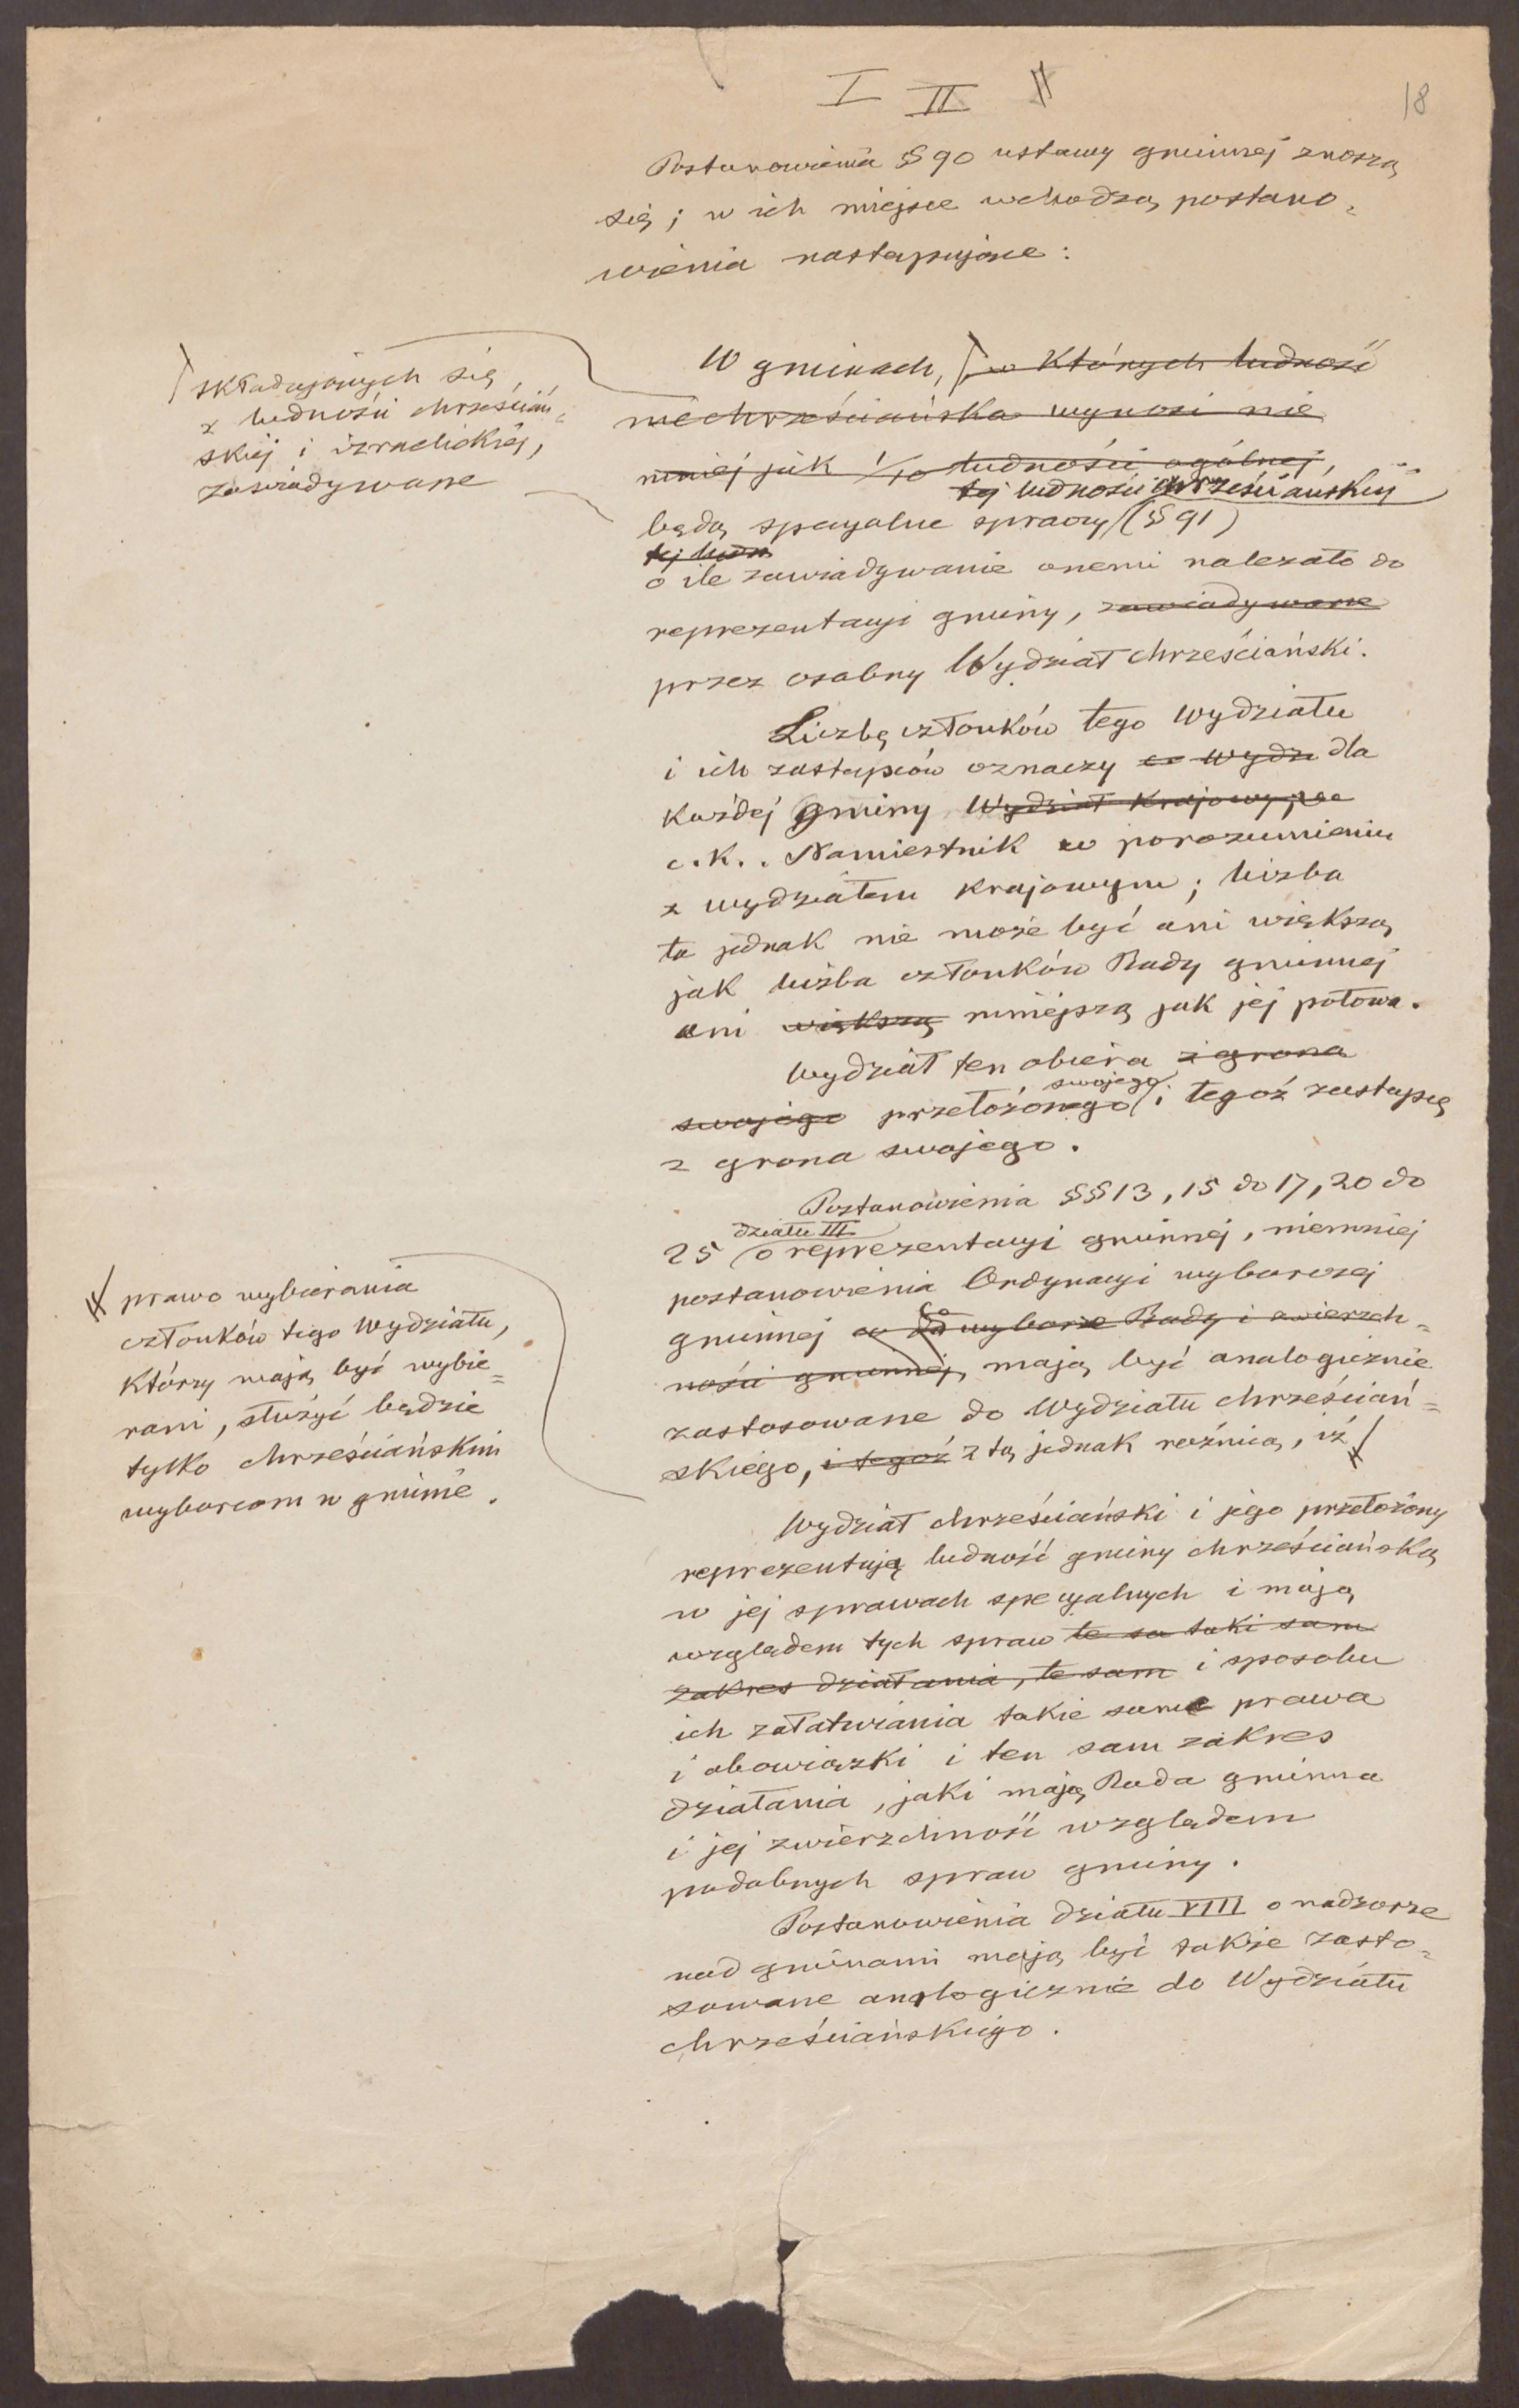 I II
18
Postanowienia § 90 ustawy gminnej znoszą
się; w ich miejsce wchodzą postano=
wienia następujące:
składających się
z ludności chrześciań=
skiej i izraelickiej,
zawiadywane
W gminach, w których ludność
niechrześciańska wynosi nie
mniej jak 1/10 ludności ogólnej,
tej ludności chrześciańskiej
będą specyalne sprawy (§ 91)
tej ludn
o ile zawiadywanie onemi należało do
reprezentacyi gminy, zawiadywane
przez osobny Wydział chrześciański.
Liczbę członków tego wydziału
i ich zastępców oznaczy wydz dla
każdej gminy Wydział krajowy
c.k. Namiestnik w porozumieniu
z wydziałem krajowym; liczba
ta jednak nie może być ani większą
jak liczba członków Rady gminnej
ani większą mniejszą jak jej połowa.
Wydział ten obiera z grona
swojego
swojego przełożonego i tegoż zastępcę
z grona swojego.
Postanowienia §§ 13, 15 do 17, 20 do
działu III
25 o reprezentacyi gminnej, niemniej
postanowienia Ordynacyi wyborczej
gminnej wyborze Rady i zwierzch=
ności gminnej, mają być analogicznie
zastosowane do Wydziału chrześciań=
skiego, i tegoż z tą jednak różnicą, iż
prawo wybierania
członków tego Wydziału,
którzy mają być wybie=
rani, służyć będzie
tylko chrześciańskim
wyborcom w gminie.
Wydział chrześciański i jego przełożony
reprezentują ludność gminy chrześciańską
w jej sprawach specyalnych i mają
względem tych spraw te sa taki sam
zakres działania, te sam i sposobu
ich załatwiania takie same prawa
i obowiązki i ten sam zakres
działania, jaki mają Rada gminna
i jej zwierzchność względem
podobnych spraw gminy.
Postanowienia działu VIII o nadzorze
nad gminami mają być także zasto=
sowane analogicznie do Wydziału
chrześciańskiego.